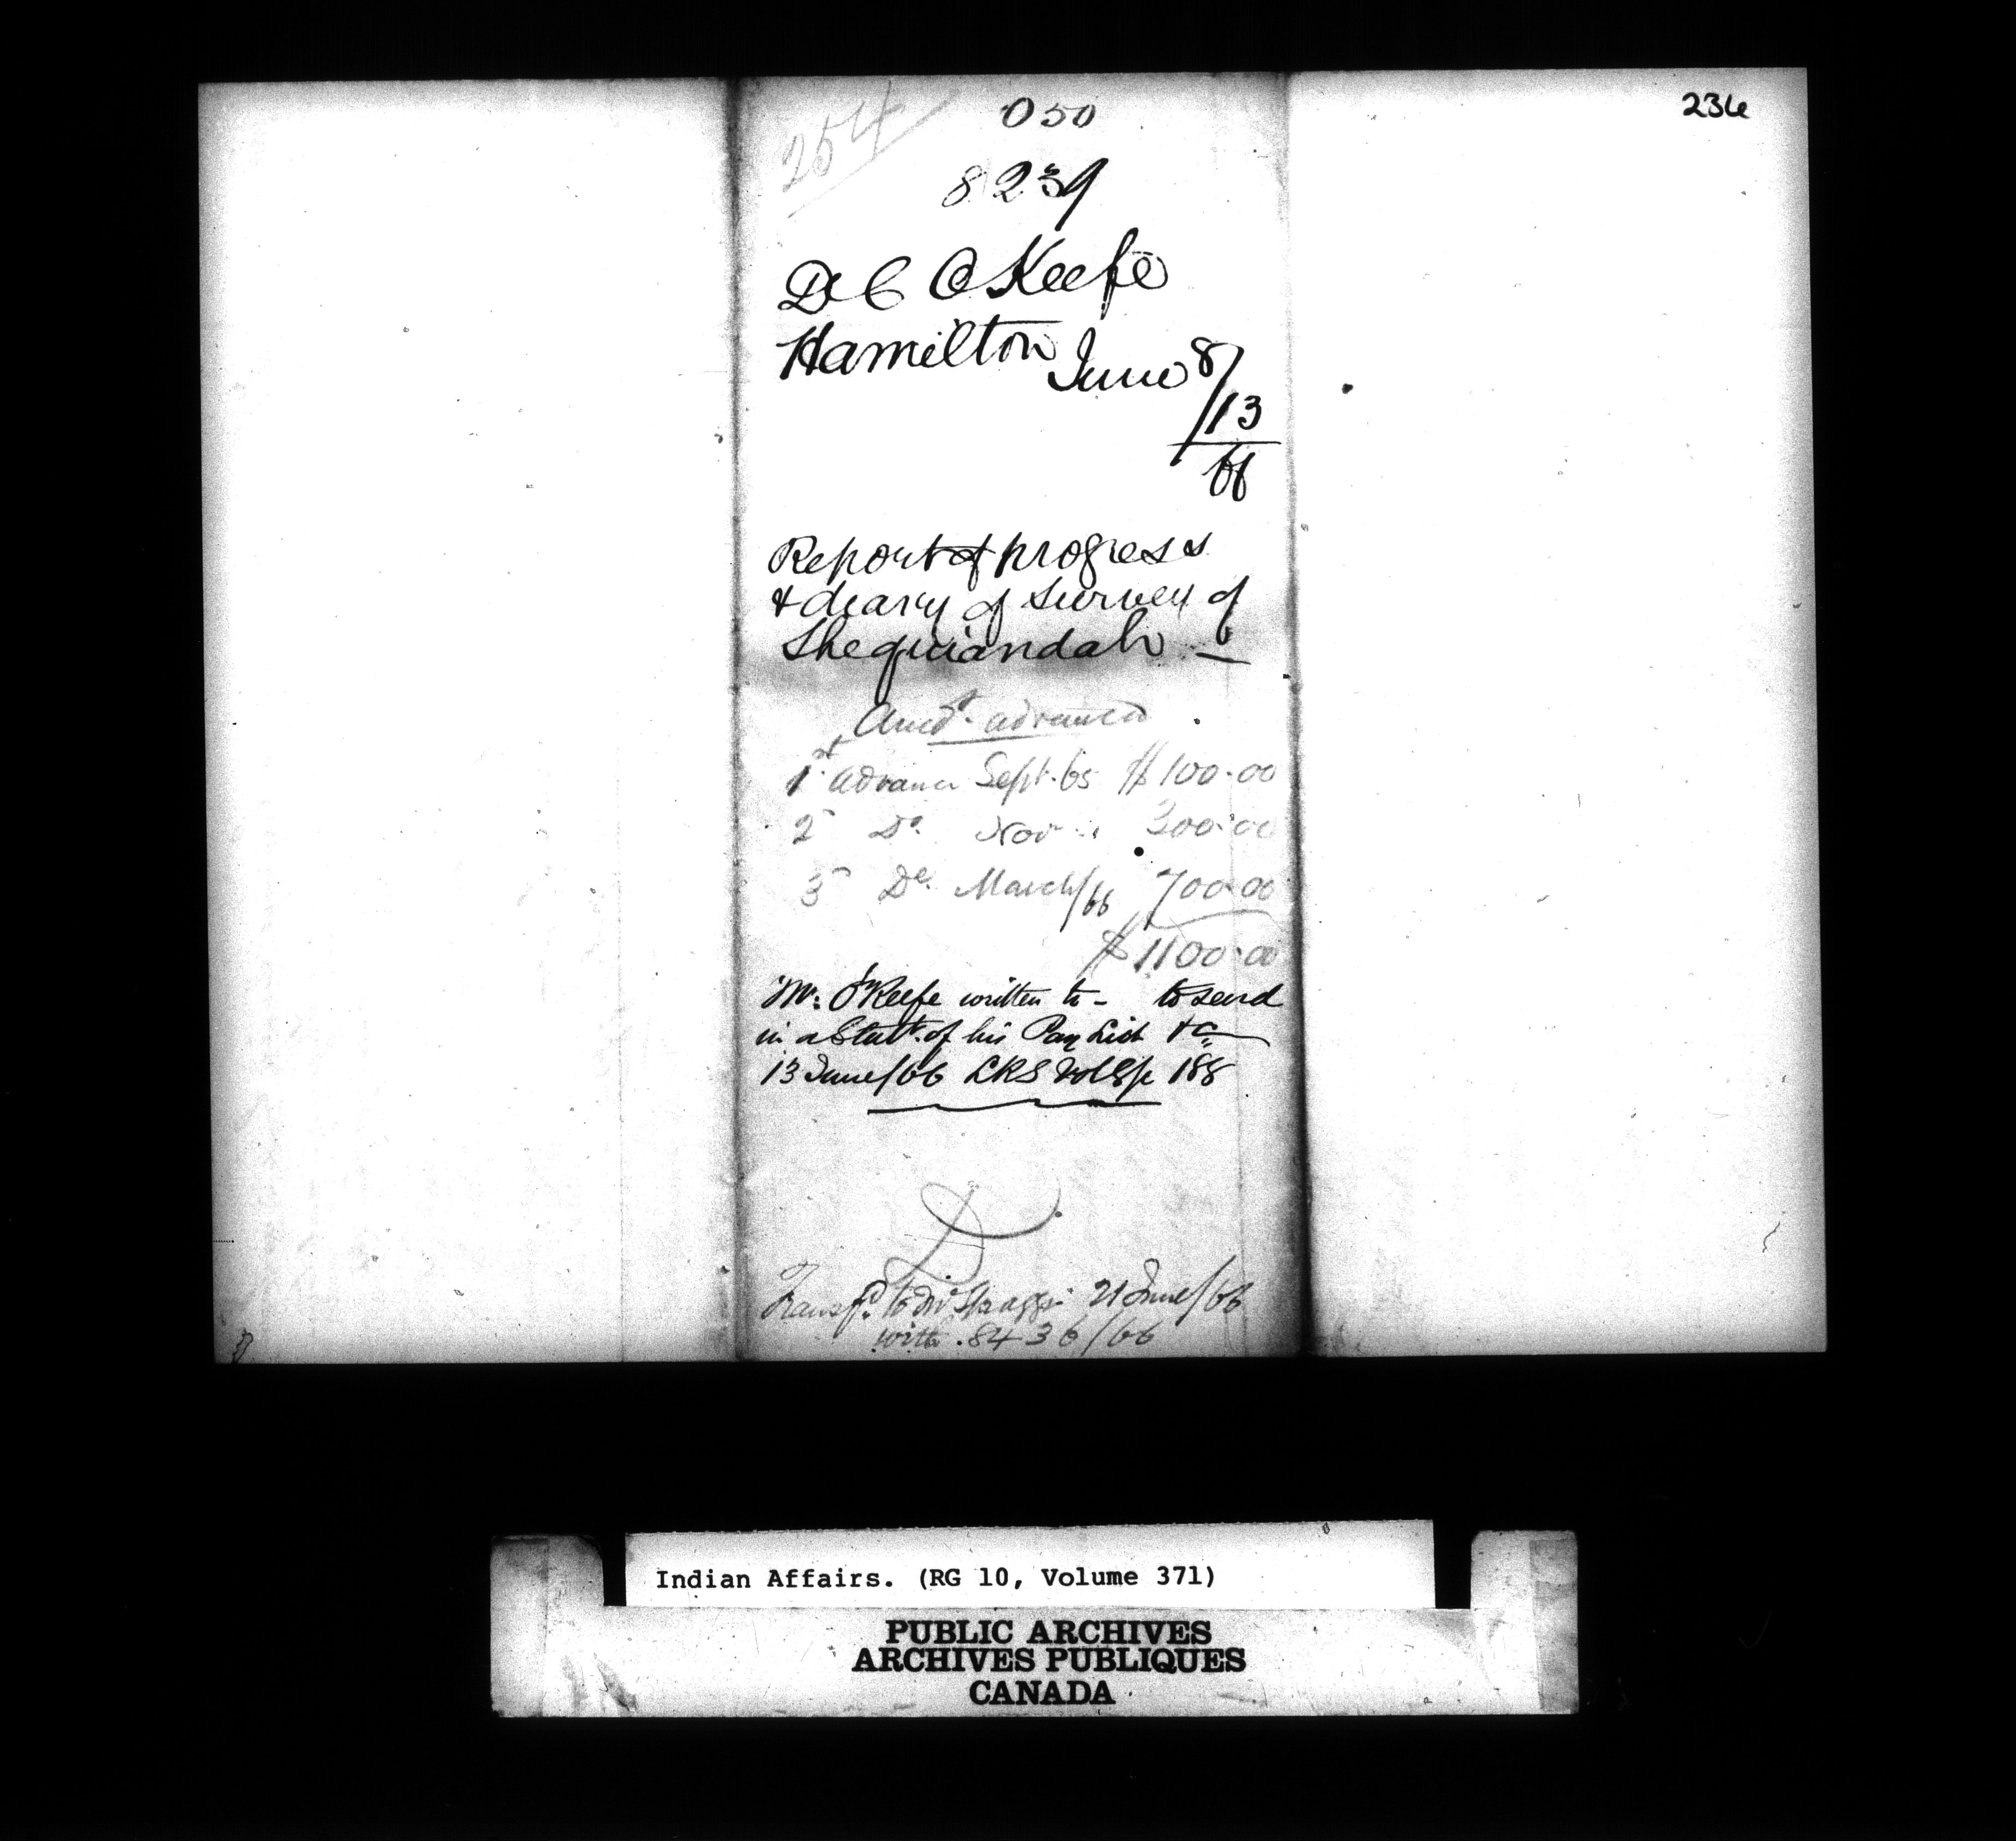 236
254
050
8239
D C O'Keefe
Hamilton June 8/13
66
Report of progress
& diary of Survey of
Sheguiandah
Amt. advanced
1st advance Sept. 65 $100.00
2d Do. Nov " 300.00
3d Do. March/66 700.00
$1100.00
Mr. O'Keefe written to - to send
in a Statt. of his Pay List &c
13 June/66 LRS Vol 8/p 188
Transfd. to Mr Spragge 21 June/66
with 8436/66
Indian Affairs. (RG 10, Volume 371)
PUBLIC ARCHIVES
ARCHIVES PUBLIQUES
CANADA